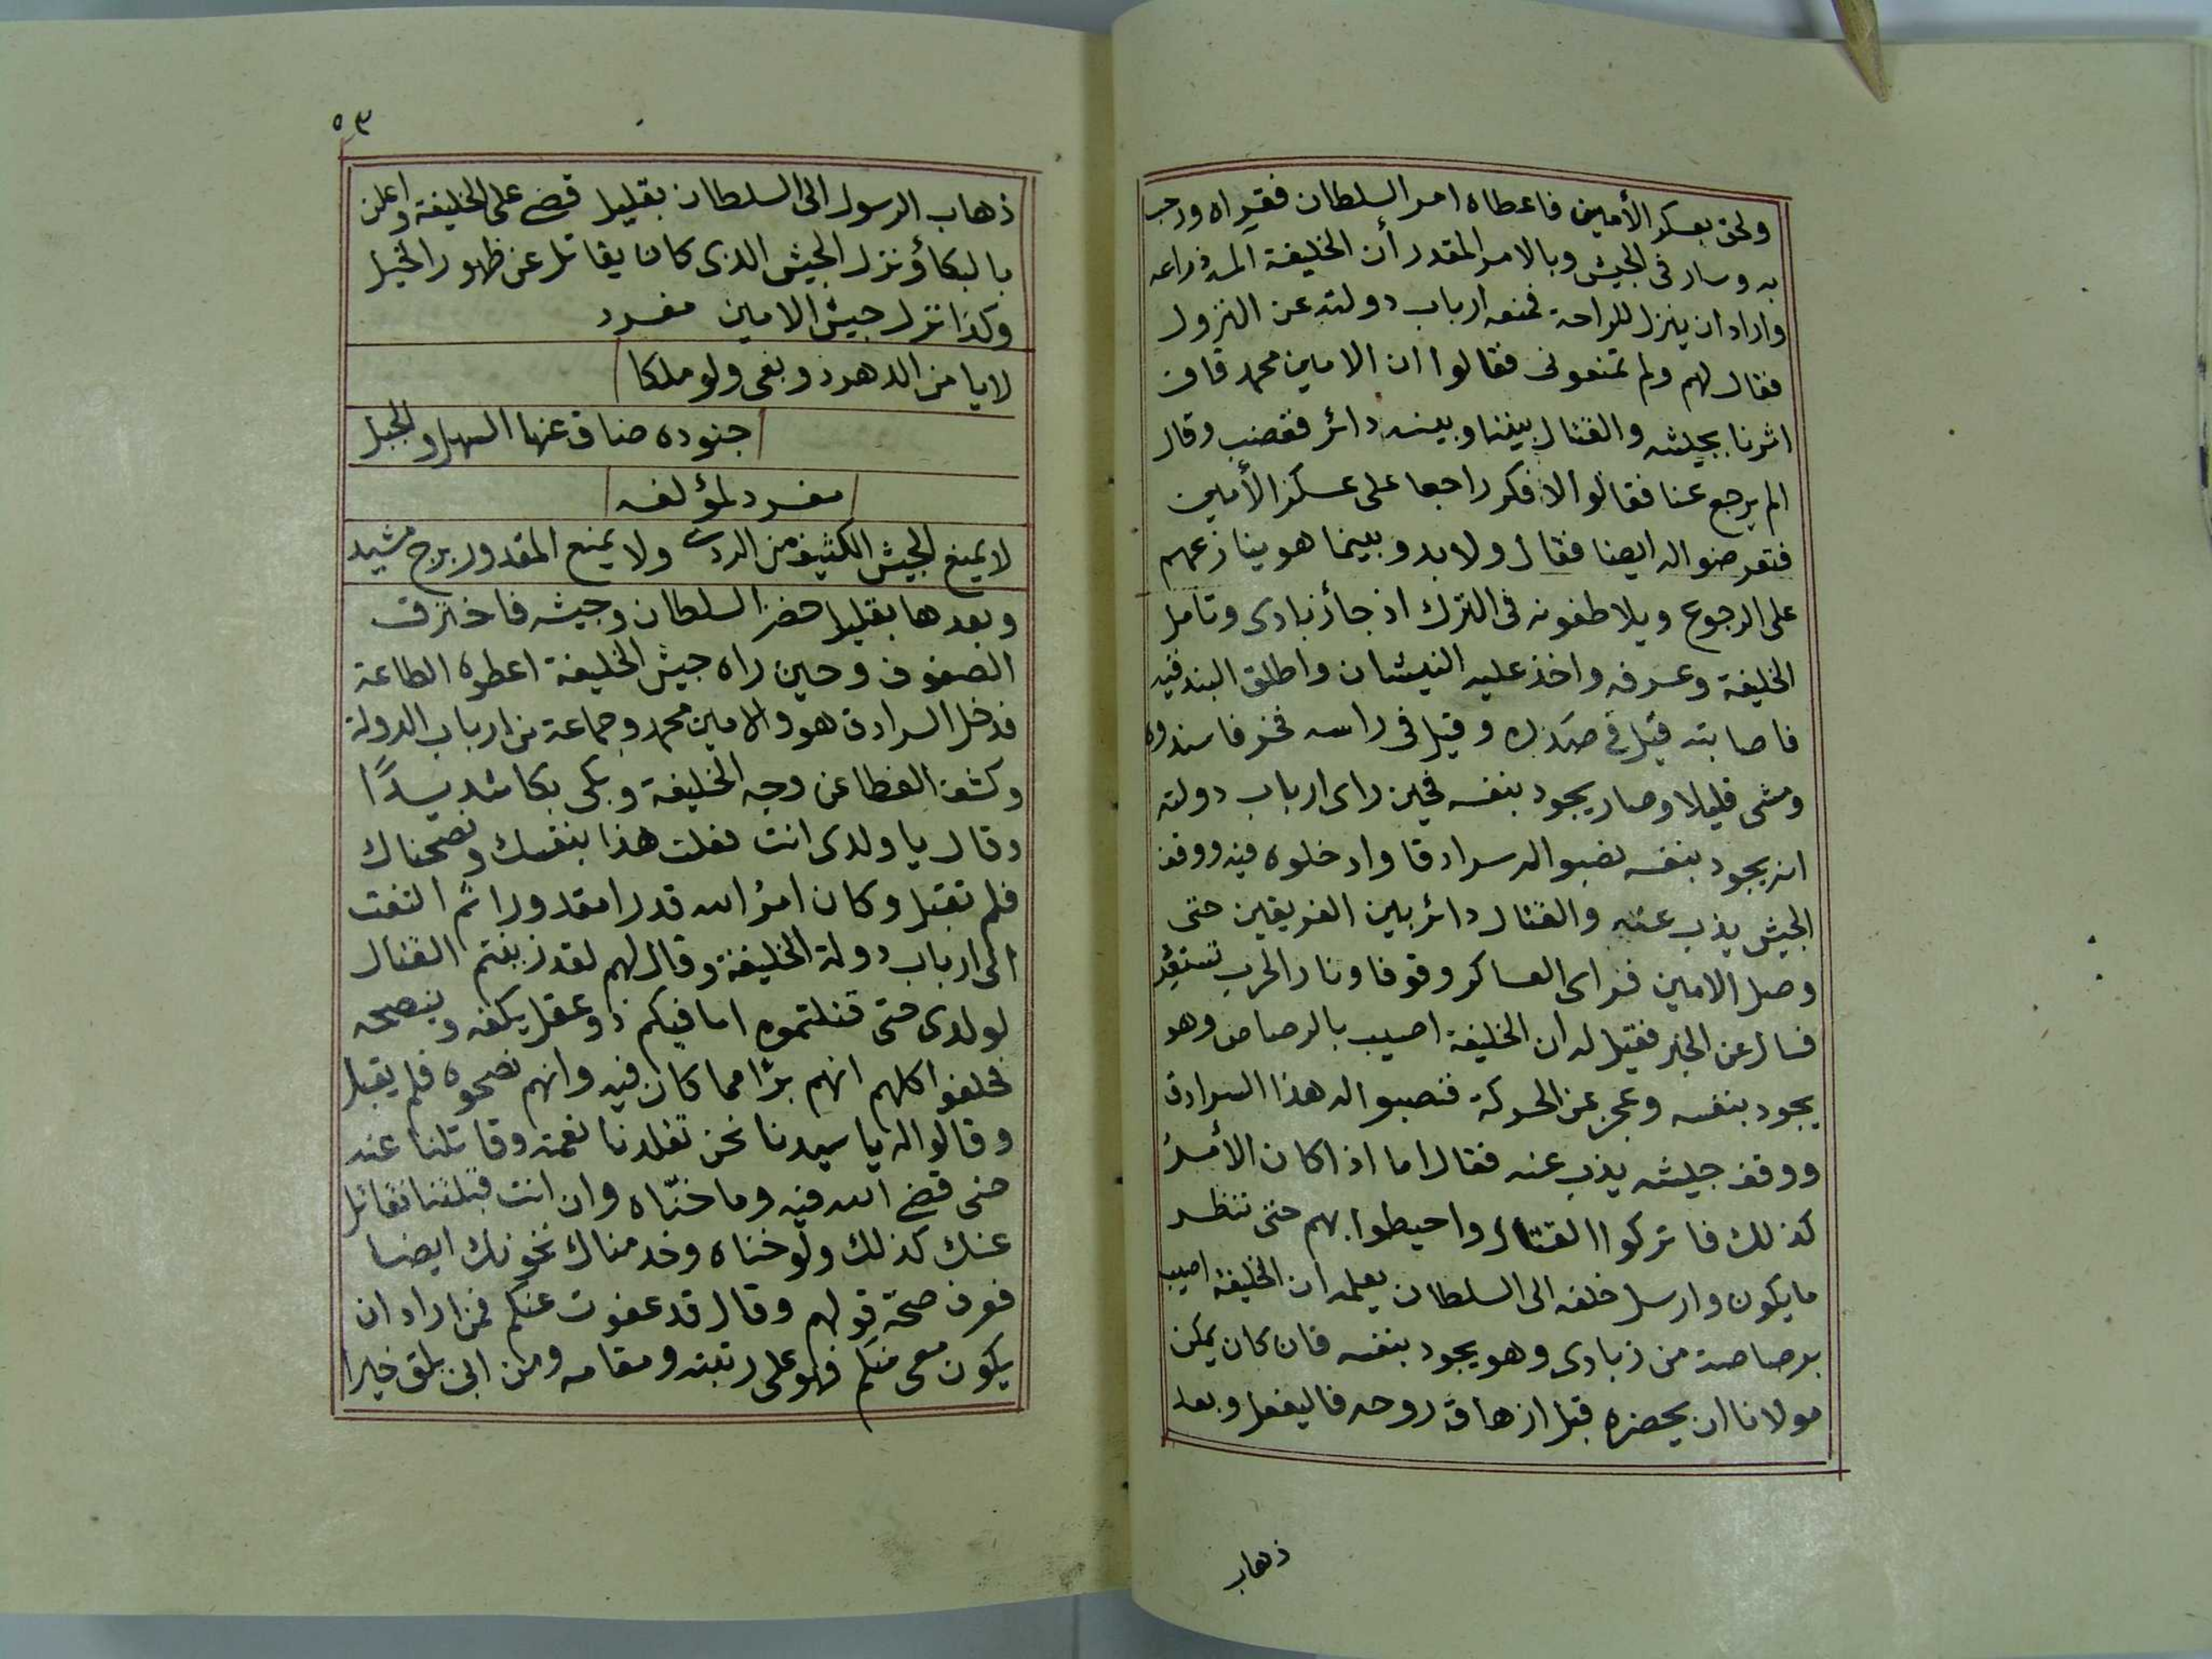 ولحق بعسكر الأمين فاعطاه امر السلطان فقراه ورحب
به وسار فى الجيش وبالامر المقدر أن الخليفة المه ذراعه
واراد ان ينزل للراحة فمنعه ارباب دولته عن النزول
فقال لهم ولم تمنعونى فقالوا ان الامين محمد قاف
اثرنا بجيشه والقتال بيننا وبينه دائر فغضب وقال
الم يرجع عنا فقالوا لا فكر راجعا على عسكر الأمين
فتعرضوا له ايضا فقال ولا بد وبينما هو ينازعهم
على الرجوع ويلاطفونه فى الترك اذ جأ زبادى وتامل
الخليفة وعرفه واخذ عليه النيشان واطلق البندقيه
فاصابته قيل فى صدره وقيل فى راسه فخر فاسندوه
ومشى قليلا وصار يجود بنفسه فحين راى ارباب دولته
انه يجود بنفسه نصبوا له سرادقا وادخلوه فيه ووقف
الجيش يذب عنه والقتال دائر بين الفريقين حتى
وصل الامين فراى العساكر وقوفا ونار الحرب تستقد
فسال عن الخبر فقيل له ان الخليفة اصيب بالرصاص وهو
يجود بنفسه وعجز عن الحركة فنصبوا له هذا السرادق
ووقف جيشه يذب عنه فقال اما اذا كان الأمر
كذلك فاتركوا القتال واحيطوا بهم حتى ننظر
ما يكون وارسل خلفه الى السلطان يعلمه ان الخليفة اصيب
برصاصة من زبادى وهو يجود بنفسه فان كان يمكن
مولانا ان يحضره قبل ازهاق روحه فاليفعل وبعد
ذهاب
٥٣
ذهاب الرسول الى السلطان بقليل قضى على الخليفة واعلن
بالبكأ ونزل الجيش الذى كان يقاتل عن ظهور الخيل
وكذا نزل جيش الامين مفرد
لا يامن الدهر ذو بغى ولو ملكا
جنوده ضاق عنها السهل والجبل
مفرد لمؤلفه
لا يمنع الجيش الكثيف من الردى ولا يمنع المقدور برج مشيد
وبعدها بقليل حضر السلطان وجيشه فاخترق
الصفوف وحين راه جيش الخليفة اعطوه الطاعة
فدخل السرادق هو والامين محمد وجماعة من ارباب الدولة
وكشف الغطا عن وجه الخليفة وبكى بكا شديدًا
وقال يا ولدى انت فعلت هذا بنفسك ونصحناك
فلم تقبل وكان امر الله قدرا مقدورا ثم التفت
الى ارباب دولة الخليفة وقال لهم لقد زينتم القتال
لولدى حتى قتلتموه اما فيكم ذو عقل يكفه وينصحه
فحلفوا كلهم انهم برًا مما كان فيه وانهم نصحوه فلم يقبل
وقالوا له يا سيدنا نحن تقلدنا نعمته وقاتلنا عنه
حتى قضى الله فيه وما خنّاه وان انت قبلتنا نقاتل
عنك كذلك ولو خناه وخدمناك نخونك ايضا
فعرف صحة قولهم وقال قد عفوت عنكم فمن اراد ان
يكون معى منكم فهو على رتبته ومقامه ومن ابى يلق خيرا